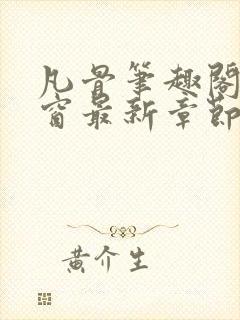 凡骨筆趣閣
窗最新章節
黃介生